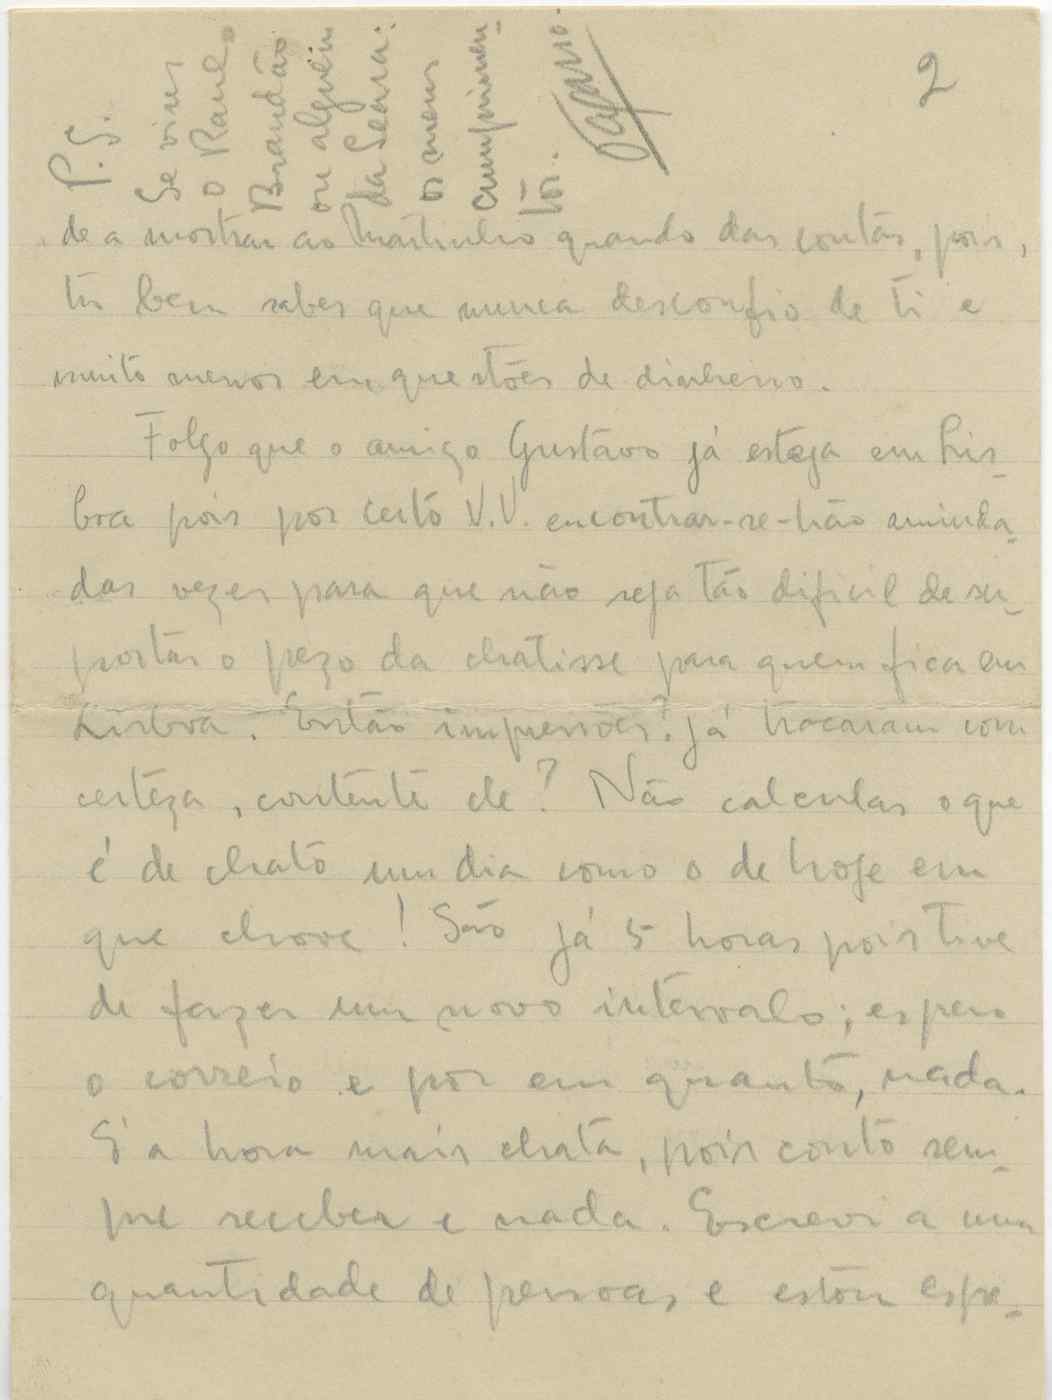 2
P. S.
Se vires
o Raul
Brandão
ou alguém
da Seara:
os meus
cumprimen-
tos.
de a mostrar ao Martinho quando das contas, pois,
tu bem sabes que nunca desconfio de ti e
muito menos em questões de dinheiro.
Folgo que o amigo Gustavo já esteja em Lis-
boa pois por certo V.V. encontrar-se-hão amiuda-
das vezes para que não seja tão dificil de su-
portar o pezo da chatisse para quem fica em
Lisboa. Então impressões? já trocaram com
certeza, contente ele? Não calculas o que
é de chato um dia como o de hoje em
que chove! São já 5 horas pois tive
de fazer um novo intervalo; espero
o correio e por em quanto, nada.
É a hora mais chata, pois conto sem-
pre receber e nada. Escrevi a uma
quantidade de pessoas e estou espe-